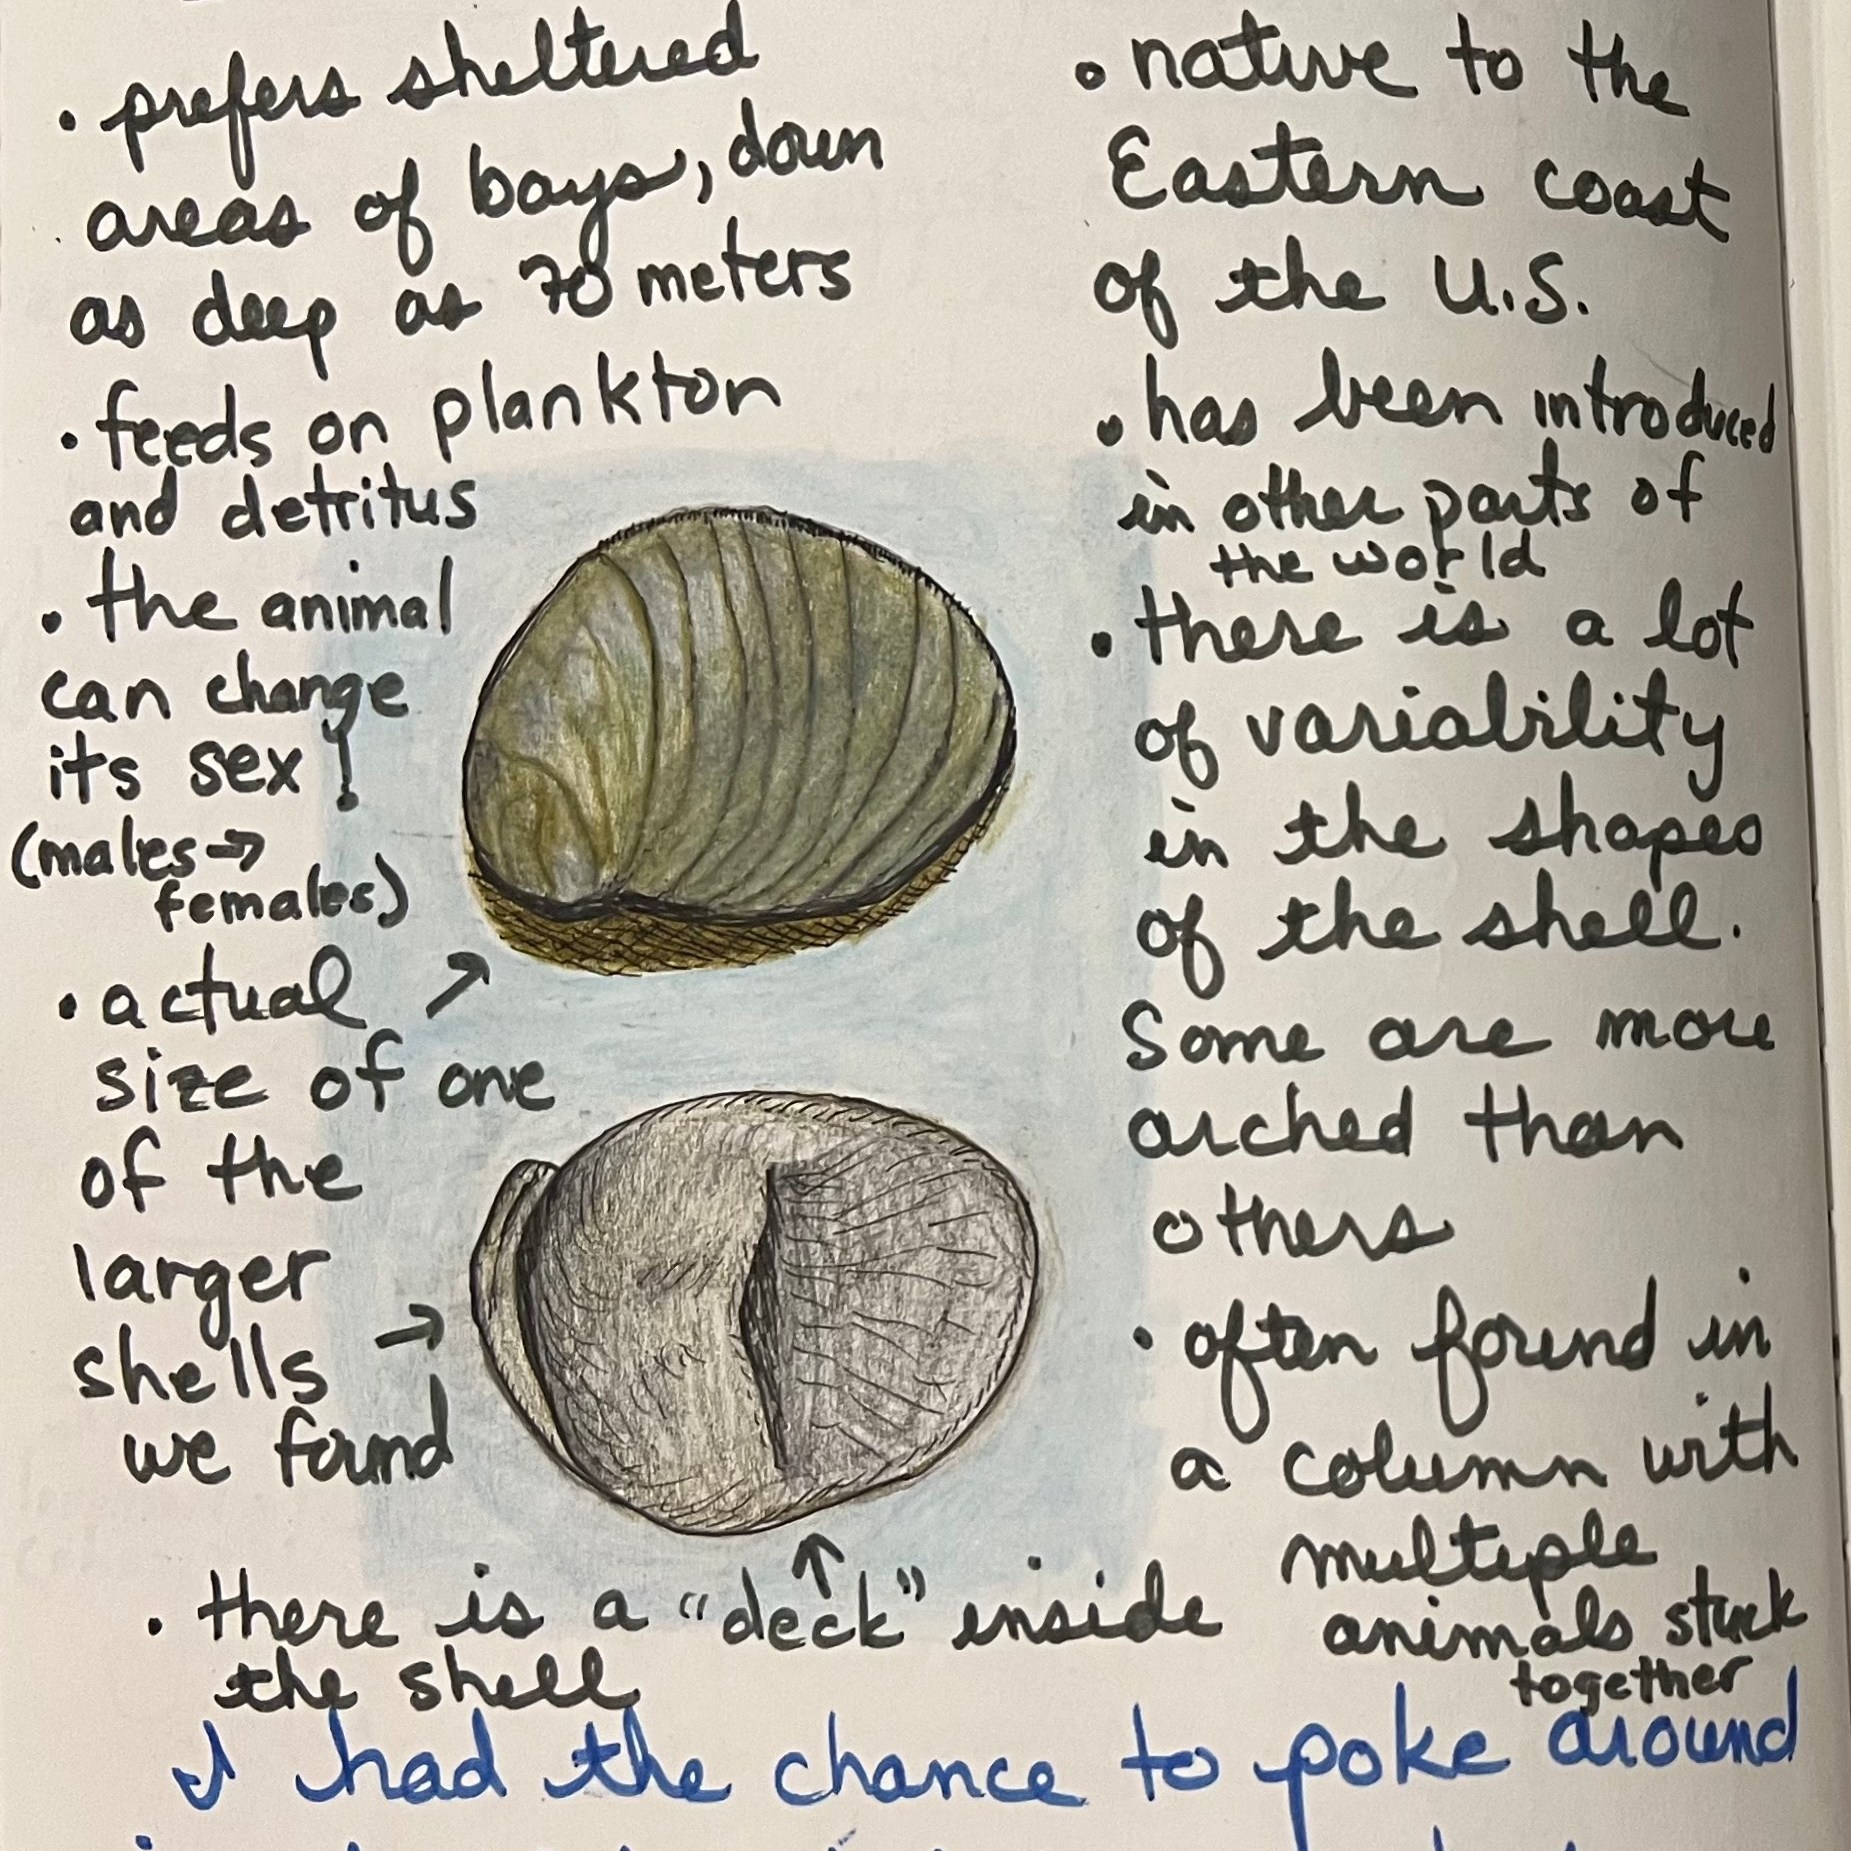 • prefers sheltered
areas of bays, down
as deep as 70 meters
• feeds on plankton
and detritus
• the animal
can change
its sex!
(males →
females)
• actual
size of one
of the
larger
shells
we found
• there is a "deck" inside
the shell
• native to the
Eastern coast
of the U.S.
• has been introduced
in other parts of
the world
• there is a lot
of variability
in the shapes
of the shell.
Some are more
arched than
others
• often found in
a column with
multiple
animals stuck
together
I had the chance to poke around